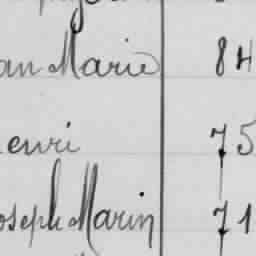 an Marie 84
enri 75
oseph Marin 71